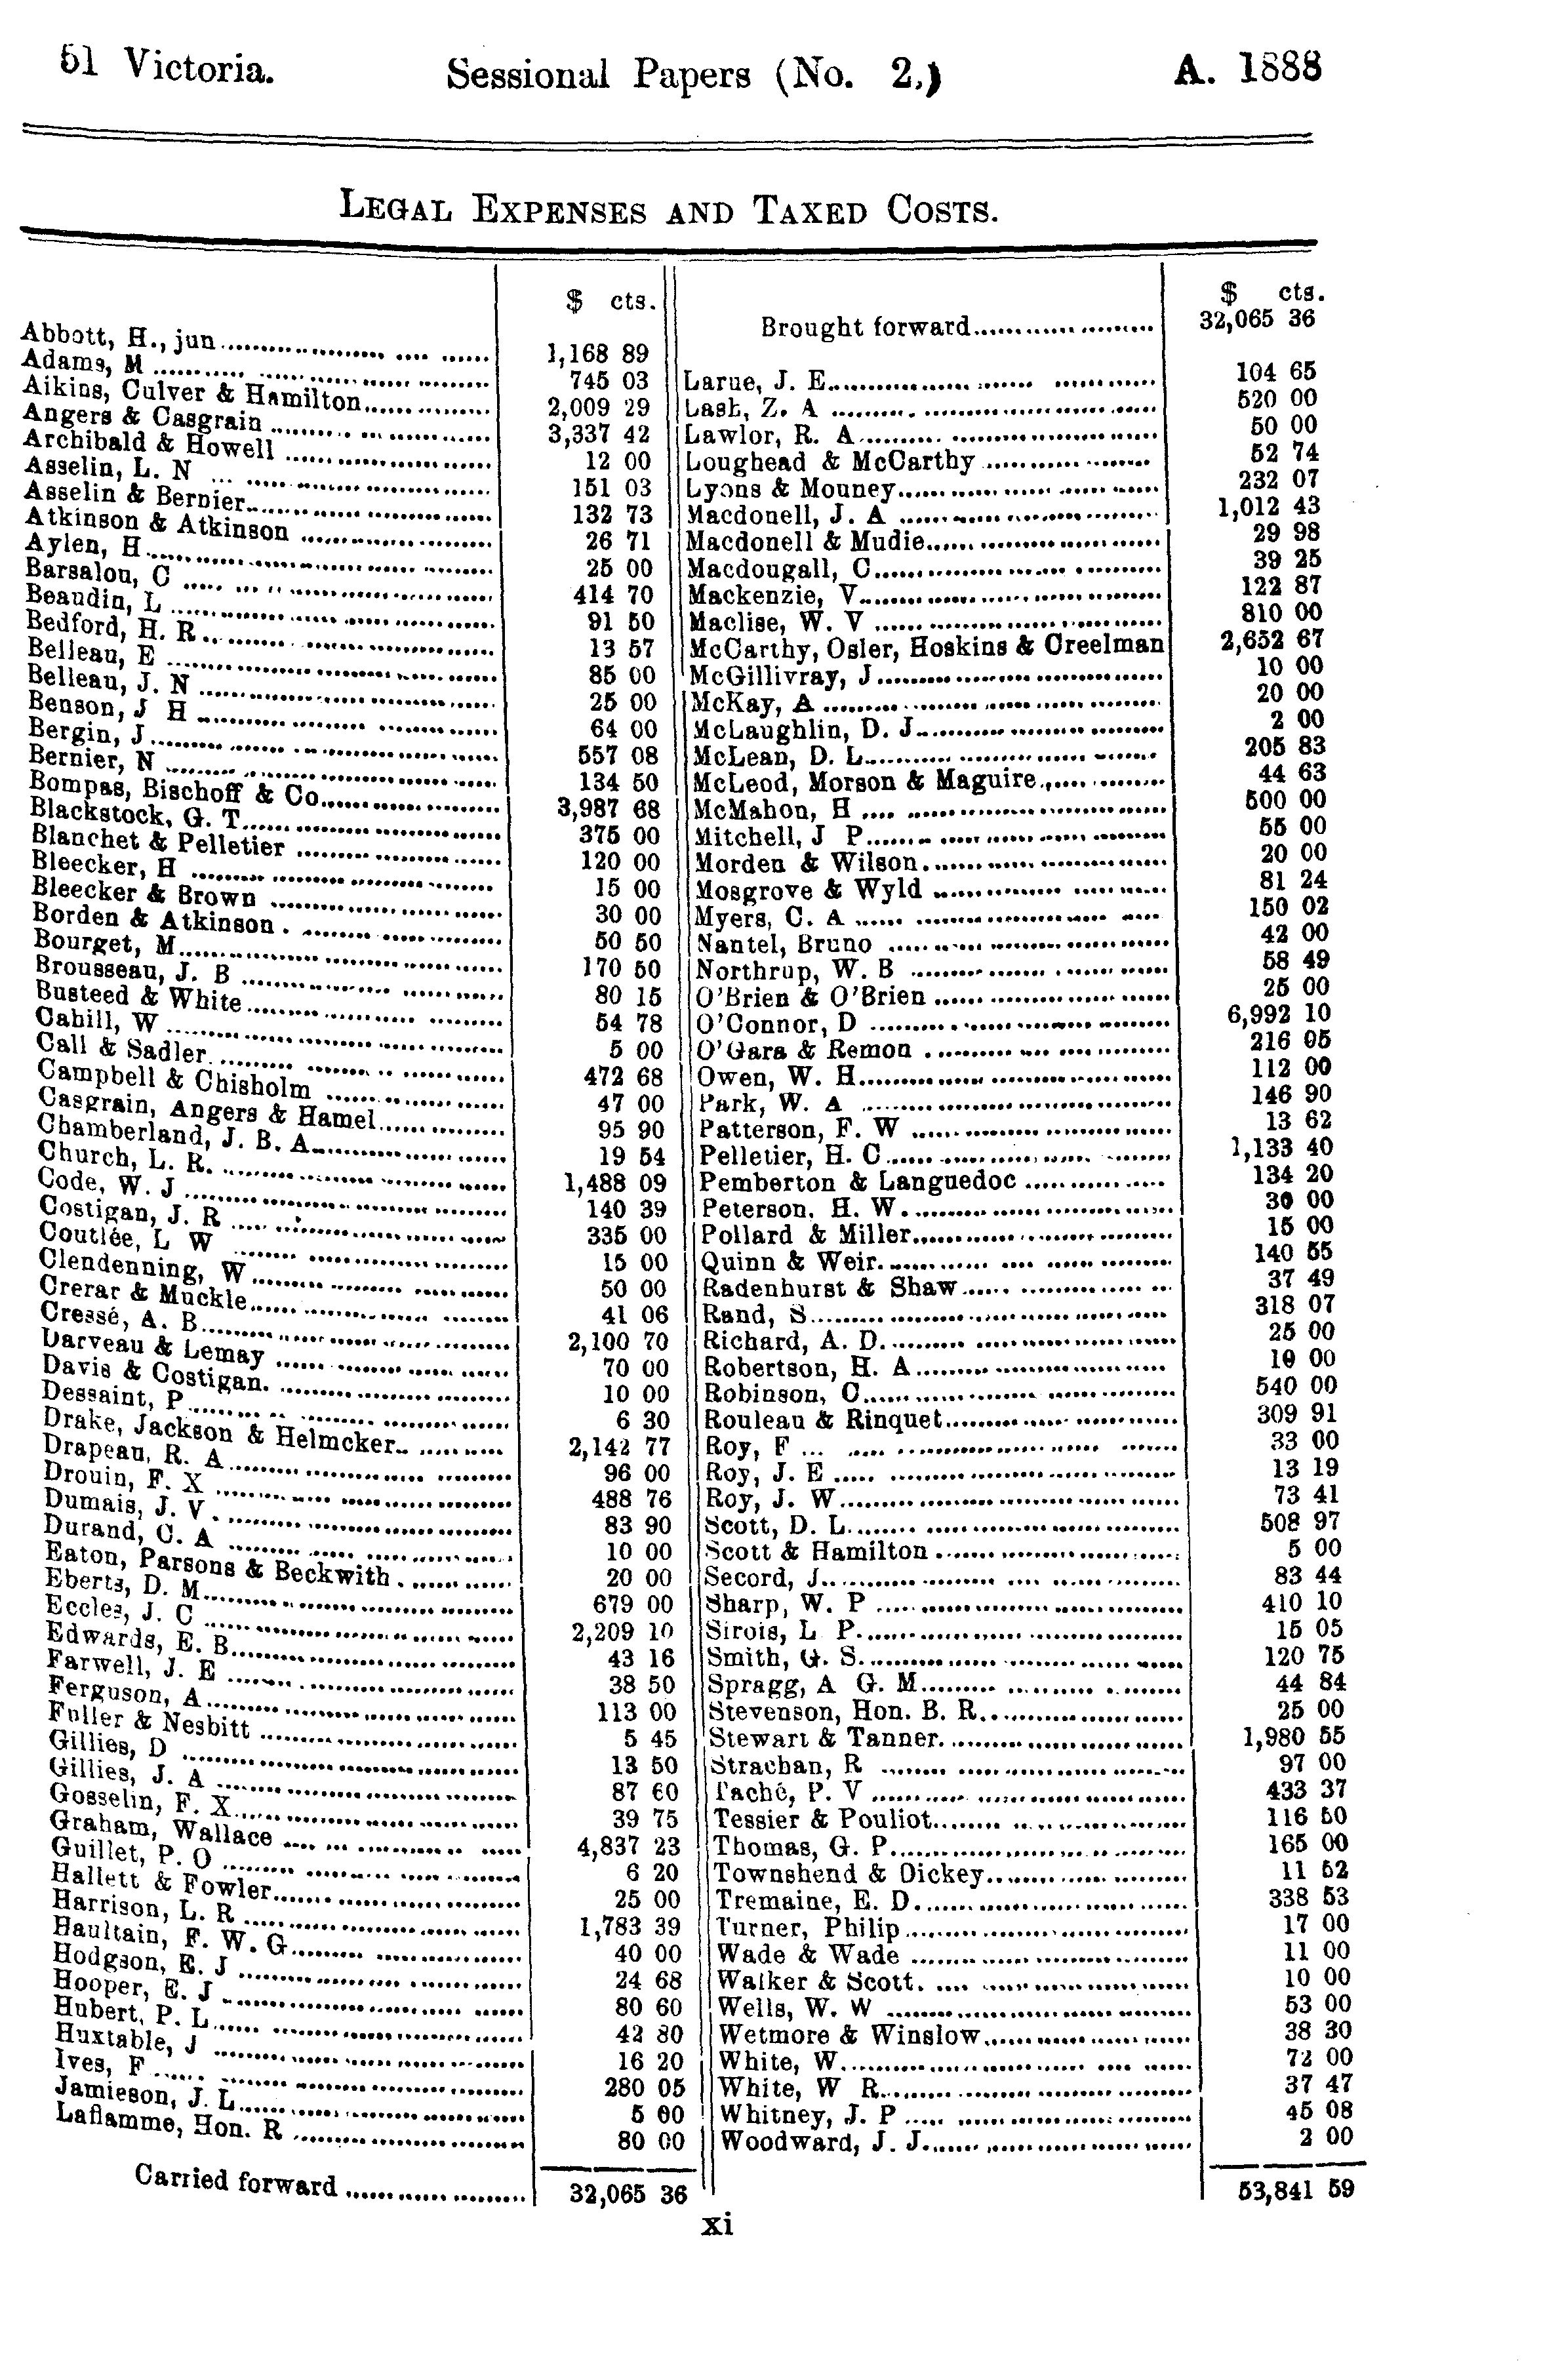 51 Victoria. Sessional Papers (No. 2,) A. 1888
LEGAL EXPENSES AND TAXED COSTS.
$ cts.
Abbott, H., jun 1,168 89
Adams, M 745 03
Aikins, Culver & Hamilton 2,009 29
Angers & Casgrain 3,337 42
Archibald & Howell 12 00
Asselin, L. N 151 03
Asselin & Bernier 132 73
Atkinson & Atkinson 26 71
Aylen, H 25 00
Barsalou, C 414 70
Beaudin, L 91 50
Bedford, H. R 13 57
Belleau, E 85 00
Belleau, J. N 25 00
Benson, J H 64 00
Bergin, J 557 08
Bernier, N 134 50
Bompas, Bischoff & Co 3,987 68
Blackstock, G. T 375 00
Blanchet & Pelletier 120 00
Bleecker, H 15 00
Bleecker & Brown 30 00
Borden & Atkinson 50 50
Bourget, M 170 50
Brousseau, J. B 80 15
Busteed & White 54 78
Cahill, W 5 00
Call & Sadler 472 68
Campbell & Chisholm 47 00
Casgrain, Angers & Hamel 95 90
Chamberland, J. B. A 19 54
Church, L. R. 1,488 09
Code, W. J 140 39
Costigan, J. R 335 00
Coutlée, L W 15 00
Clendenning, W 50 00
Crerar & Muckle 41 06
Cressé, A. B 2,100 70
Darveau & Lemay 70 00
Davis & Costigan. 10 00
Dessaint, P 6 30
Drake, Jackson & Helmcker 2,142 77
Drapeau, R. A 96 00
Drouin, F. X 488 76
Dumais, J. V. 83 90
Durand, C. A 10 00
Eaton, Parsons & Beckwith 20 00
Eberts, D. M 679 00
Eccles, J. C 2,209 10
Edwards, E. B 43 16
Farwell, J. E 38 50
Ferguson, A 113 00
Fuller & Nesbitt 5 45
Gillies, D 13 50
Gillies, J. A 87 60
Gosselin, F. X 39 75
Graham, Wallace 4,837 23
Guillet, P. O 6 20
Hallett & Fowler 25 00
Harrison, L. R 1,783 39
Haultain, F. W. G 40 00
Hodgson, E. J 24 68
Hooper, E. J 80 60
Hubert, P. L 42 80
Huxtable, J 16 20
Ives, F 280 05
Jamieson, J. L 5 00
Laflamme, Hon. R 80 00
Carried forward 32,065 36
$ cts.
Brought forward 32,065 36
Larue, J. E. 104 65
Lash, Z. A 520 00
Lawlor, R. A 50 00
Loughead & McCarthy 52 74
Lyons & Mouney 232 07
Macdonell, J. A 1,012 43
Macdonell & Mudie 29 98
Macdougall, C 39 25
Mackenzie, V 122 87
Maclise, W. V 810 00
McCarthy, Osler, Hoskins & Creelman 2,652 67
McGillivray, J 10 00
McKay, A 20 00
McLaughlin, D. J 2 00
McLean, D. L 205 83
McLeod, Morson & Maguire 44 63
McMahon, H 500 00
Mitchell, J P 55 00
Morden & Wilson 20 00
Mosgrove & Wyld 81 24
Myers, C. A 150 02
Nantel, Bruno 42 00
Northrup, W. B 58 49
O'Brien & O'Brien 25 00
O'Connor, D 6,992 10
O'Gara & Remon 216 05
Owen, W. H 112 00
Park, W. A 146 90
Patterson, F. W 13 62
Pelletier, H. C 1,133 40
Pemberton & Languedoc 134 20
Peterson, H. W. 30 00
Pollard & Miller 15 00
Quinn & Weir. 140 55
Radenhurst & Shaw 37 49
Rand, S 318 07
Richard, A. D. 25 00
Robertson, H. A 10 00
Robinson, C 540 00
Rouleau & Rinquet 309 91
Roy, F 33 00
Roy, J. E 13 19
Roy, J. W 73 41
Scott, D. L 508 97
Scott & Hamilton 5 00
Secord, J 83 44
Sharp, W. P 410 10
Sirois, L P. 15 05
Smith, G. S. 120 75
Spragg, A G. M 44 84
Stevenson, Hon. B. R. 25 00
Stewart & Tanner. 1,980 55
Strachan, R 97 00
Taché, P. V 433 37
Tessier & Pouliot 116 50
Thomas, G. P 165 00
Townshend & Dickey 11 52
Tremaine, E. D 338 53
Turner, Philip 17 00
Wade & Wade 11 00
Walker & Scott. 10 00
Wells, W. W 53 00
Wetmore & Winslow 38 30
White, W 72 00
White, W R 37 47
Whitney, J. P 45 08
Woodward, J. J 2 00
53,841 59
xi